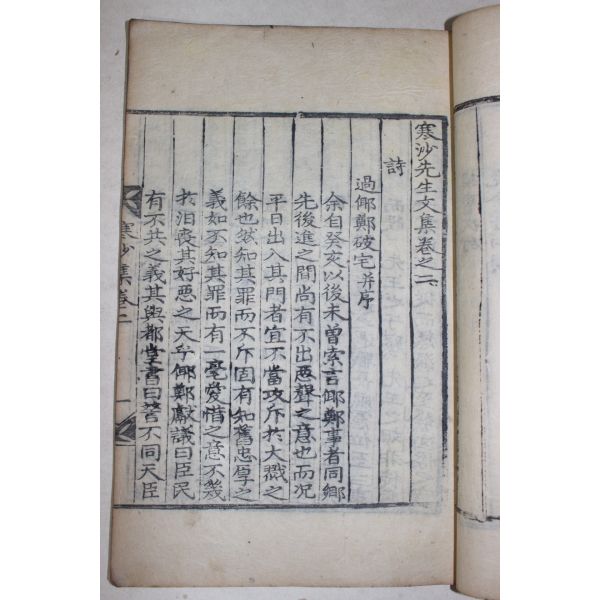 寒沙先生文集卷之二
詩
過㑋鄭破宅幷序
余自癸亥以後未曾索言㑋鄭事者同鄉
先後進之間尚有不出惡聲之意也而况
平日出入其門者宜不當攻斥於大戮之
餘也然知其罪而不斥固有知舊忠厚之
義如不知其罪而有一毫愛惜之意不幾
於汨喪其好惡之天乎㑋鄭獻議曰臣民
有不共之義其與都堂書曰誓不同天臣
寒沙集卷二
一